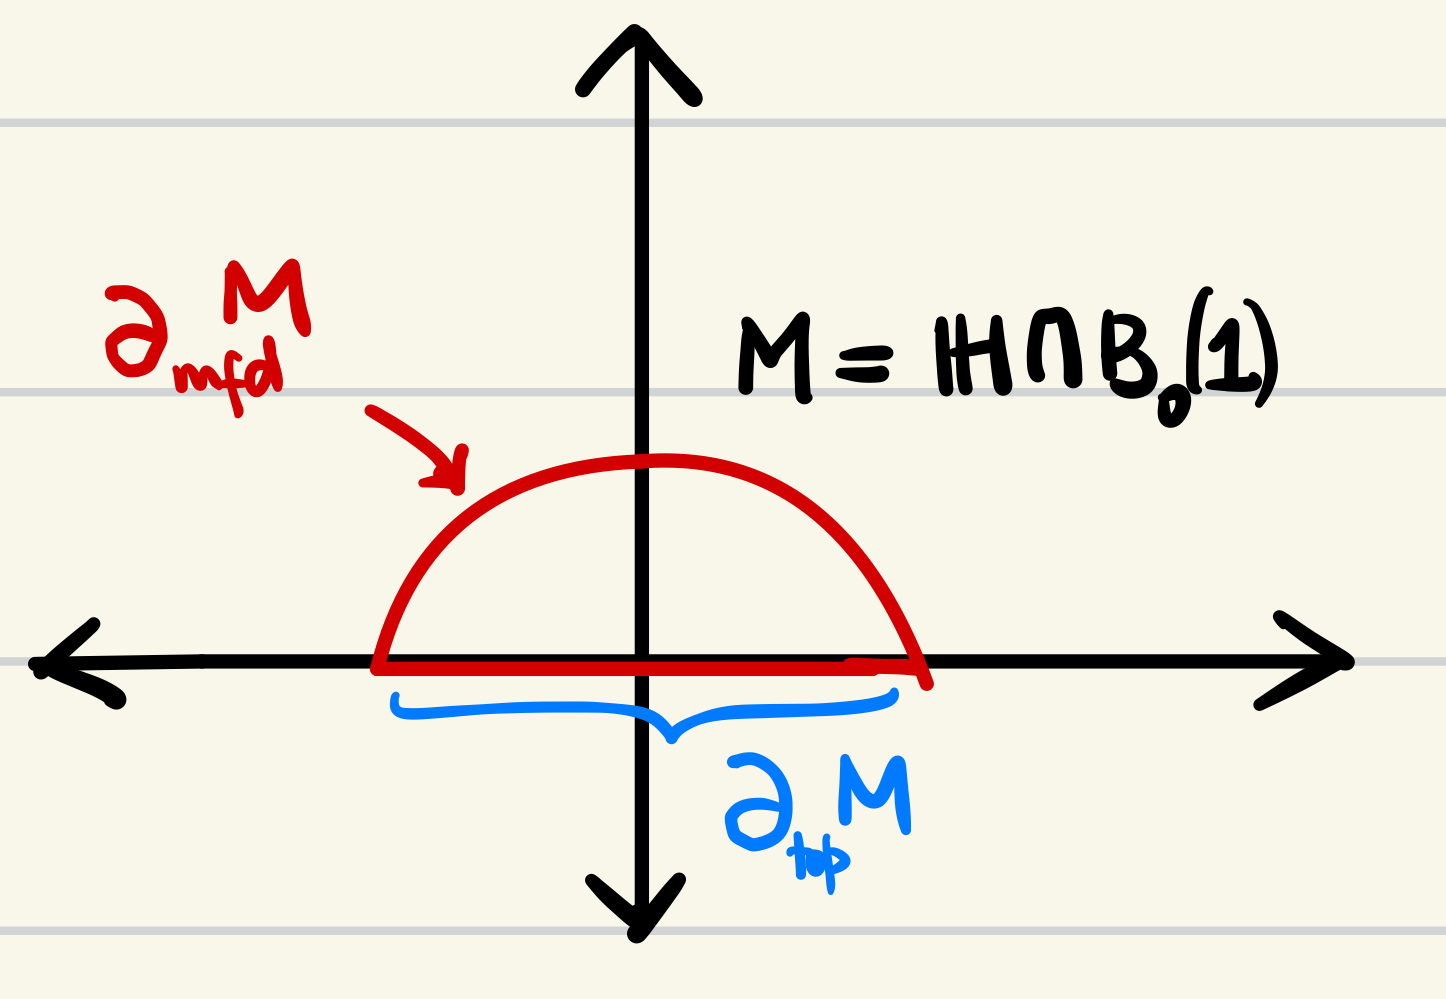 ∂_mfd M
M = ℍ ∩ B_0(1)
∂_top M